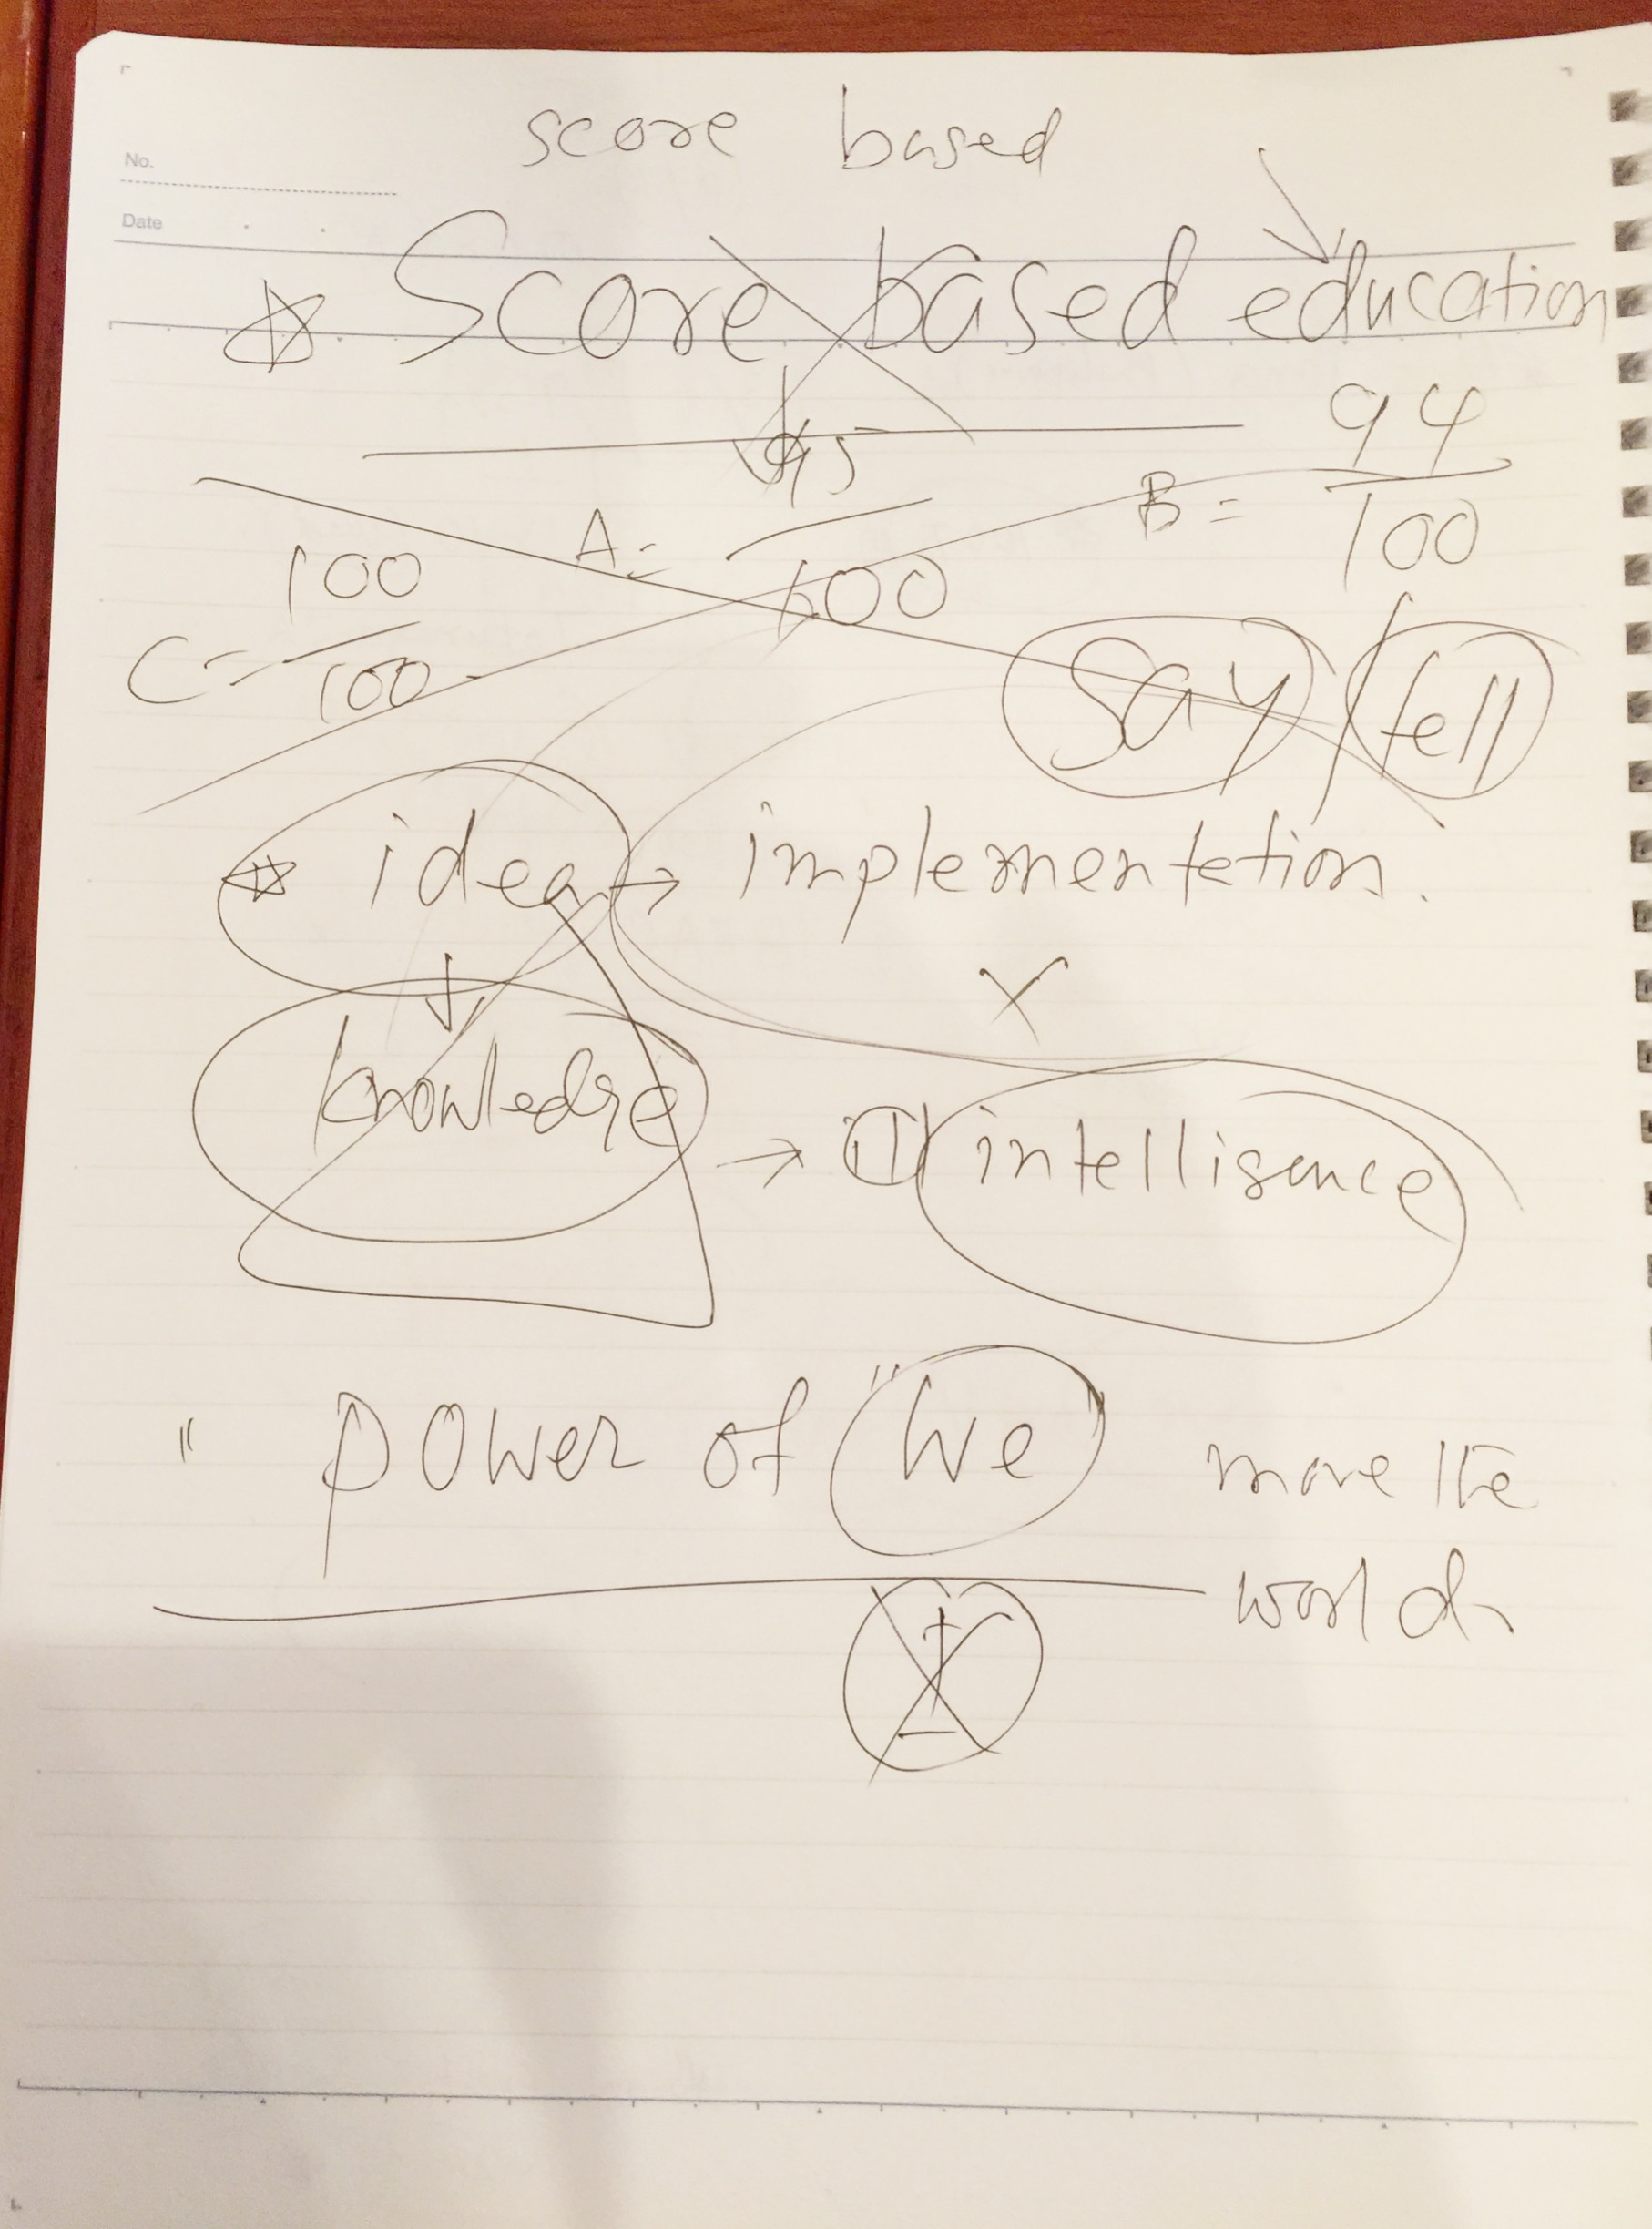 score based
No.
Date
☆ Score based education
A = 95/100
B = 94/100
C = 100/100
say / tell
☆ idea → implementetion.
↓
X
knowledge → ① intelligence
" power of "We" move the
world
I